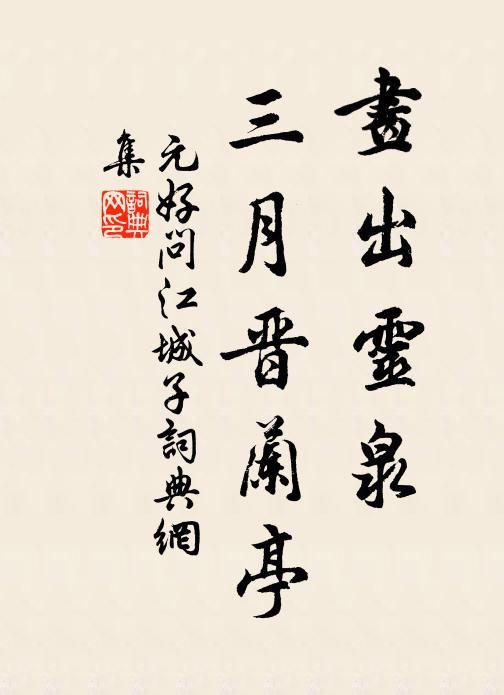 畫出靈泉
三月晋蘭亭
元好問江城子詞典網
集
詞典網印